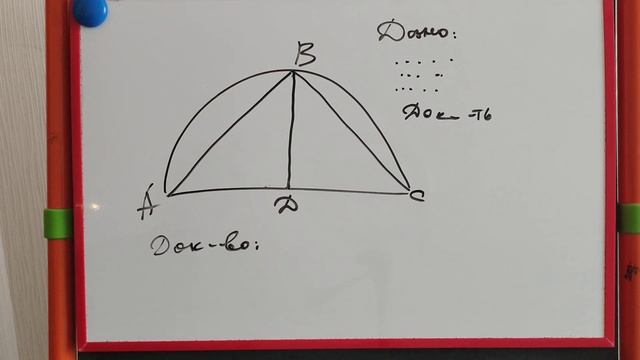 Дано:
B
. . . . .
. . . .
. . . .
Док-ть
A
D
C
Док-во: